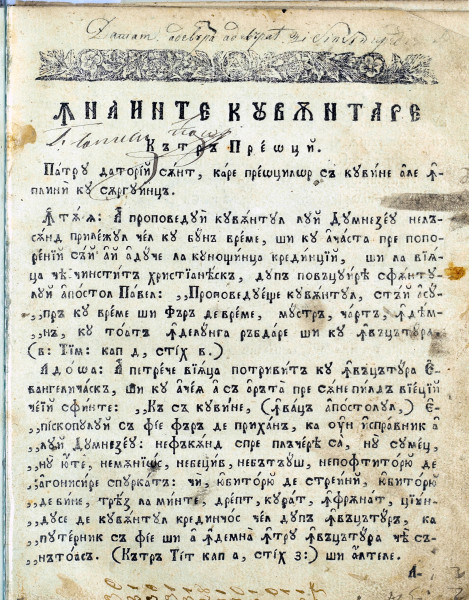 ꙞНАИНТЕ КꙊВѪНТАРЕ
Кътръ Преѡцй.
Патрꙋ даторїй сѫнт, каре преѡцилѡр съ кꙋвине але ꙟ
плини кꙋ сѫргꙋинцъ.
Ꙟтѫѧ: А проповедꙋй кꙋвѫнтꙋл лꙋй Дꙋмнезеꙋ нелъ
сѫнд прилежꙋл чел кꙋ бꙋн време, ши кꙋ ачаста пре попо
ренїй съй ай адꙋче ла кꙋнощинца крединцїй, ши ла вїѧ
ца чѣ чинстит христїанѣскъ, дꙋпъ повъцꙋире сфѫнтꙋ
лꙋй апостол Павел: „Проповедꙋеще кꙋвѫнтꙋл, стъй асꙋ
„пръ кꙋ време ши фъръ де време, мꙋстръ, чартъ, ꙟдем
„нъ, кꙋ тоатъ ꙟделꙋнга ръбдаре ши кꙋ ꙟвъцътꙋра.
(в: Тїм: кап д, стїх в.)
Адоѡа: А петрече вїѧца потривит кꙋ ꙟвъцътꙋра Е
вангеличаскъ, ши кꙋ ачеѧ а съ аръта пре сѫне пилдъ вїецїй
чейй сфинте: „Къ съ кꙋвине, (ꙟвацъ апостолꙋл,) Е
„пїскопꙋлꙋй съ фїе фъръ де приханъ, ка ꙋн исправник а
„лꙋй Дꙋмнезеꙋ: нефъкѫнд спре плъчерѣ са, нꙋ сꙋмец,
„нꙋ юте, немѫнїѡс, небецив, небътъꙋш, непофтиторю де
„агонисире спꙋркатъ: чи, юбиторю де стреинй, юбиторю
„де бине, трѣз ла минте, дрепт, кꙋрат, ꙟфрѫнат, цїин
„дꙋсе де кꙋвѫнтꙋл крединчос чел дꙋпъ ꙟвъцътꙋръ, ка
„пꙋтерник съ фїе ши а ꙟдемна ꙟтрꙋ ꙟвъцътꙋра чѣ съ
„нътоасъ. (Кътръ Тіт кап а, стїх з:) ши алтеле.
А-